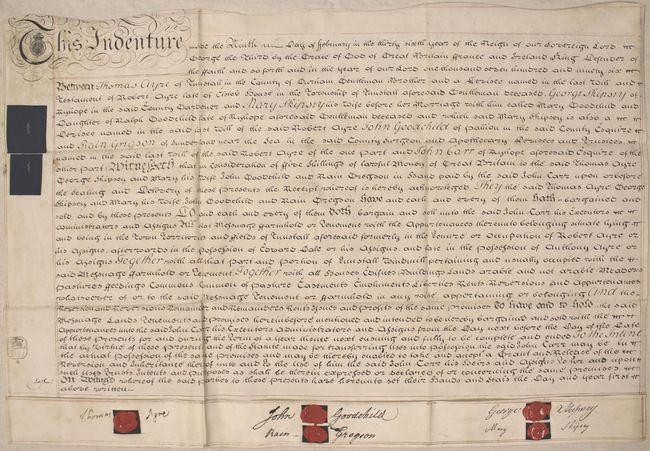 This Indenture made the Ninth Day of February in the thirty sixth Year of the Reign of our Sovereign Lord
George the Third by the Grace of God of Great Britain France and Ireland King Defender of
the faith and so forth and in the Year of our Lord one thousand seven hundred and ninety six
Between Thomas Ayre of Tunstall in the County of Durham Gentleman Brother and a Devisee named in the last Will and
Testament of Robert Ayre late of House in the Township of Tunstall aforesaid Gentleman deceased, George Shipsey of
Ryhope in the said County Gardener and Mary Shipsey his Wife before her Marriage with him called Mary Goodchild and
Daughter of Ralph Goodchild late of Ryhope aforesaid Gentleman deceased and which said Mary Shipsey is also a
Devisee named in the said last Will of the said Robert Ayre John Goodchild of Pallion in the said County Esquire
and Rain Gregson of Sunderland near the Sea in the said County Surgeon and Apothecary Devisees and Trustees
named in the said last Will of the said Robert Ayre of the one part and John Carr of Ryhope aforesaid Esquire of the
other part Witnesseth that in Consideration of five Shillings of lawful Money of Great Britain to the said Thomas Ayre
George Shipsey and Mary his Wife John Goodchild and Rain Gregson in Hand paid by the said John Carr upon or before
the Sealing and Delivery of these Presents the Receipt whereof is hereby acknowledged They the said Thomas Ayre George
Shipsey and Mary his Wife John Goodchild and Rain Gregson have and each and every of them hath bargained and
sold and by these presents Do and each and every of them doth bargain and sell unto the said John Carr his Executors
Administrators and Assigns All that Messuage farmhold or Tenement with the Appurtenances thereunto belonging situate lying
and being in the Town Territories and fields of Tunstall aforesaid formerly in the Tenure or Occupation of Robert Ayre or
his Assigns, afterwards in the possession of Edward Dale or his Assigns and late in the Possession of Anthony Ayre or
his Assigns Together with all that Part and Portion of Tunstall Windmill pertaining and usually occupied with the
said Messuage farmhold or Tenement Together with all Houses Edifices Buildings Lands arable and not arable Meadows
pastures feedings Commons Common of pasture Easements Emoluments Liberties Rents Reversions and Appurtenances
whatsoever of or to the said Messuage Tenement or farmhold in any wise appertaining or belonging And the
Reversion and Reversions Remainder and Remainders Rents Issues and Profits of the same premises To have and to hold the said
Messuage Lands Tenements and Premises hereinbefore mentioned and intended to be hereby bargained and sold with the
Appurtenances unto the said John Carr his Executors Administrators and Assigns from the Day next before the Day of the Date
of these Presents for and during the Term of a Year thence next ensuing and fully to be compleat and ended To the Intent
that by Virtue of these Presents and of the Statute made for transferring Uses into Possession the said John Carr may be in
the actual Possession of the said Premises and may be thereby enabled to take and accept a Grant and Release of the
Reversion and Inheritance thereof unto and to the Use of him the said John Carr his Heirs and Assigns To for and upon
such Uses Trusts Intents and Purposes as shall be therein expressed or declared of or concerning the same premises
In Witness whereof the said parties to these presents have hereunto set their Hands and Seals the Day and year first
above written.
Thomas Ayre
John Goodchild
George Shipsey
Rain Gregson
Mary Shipsey